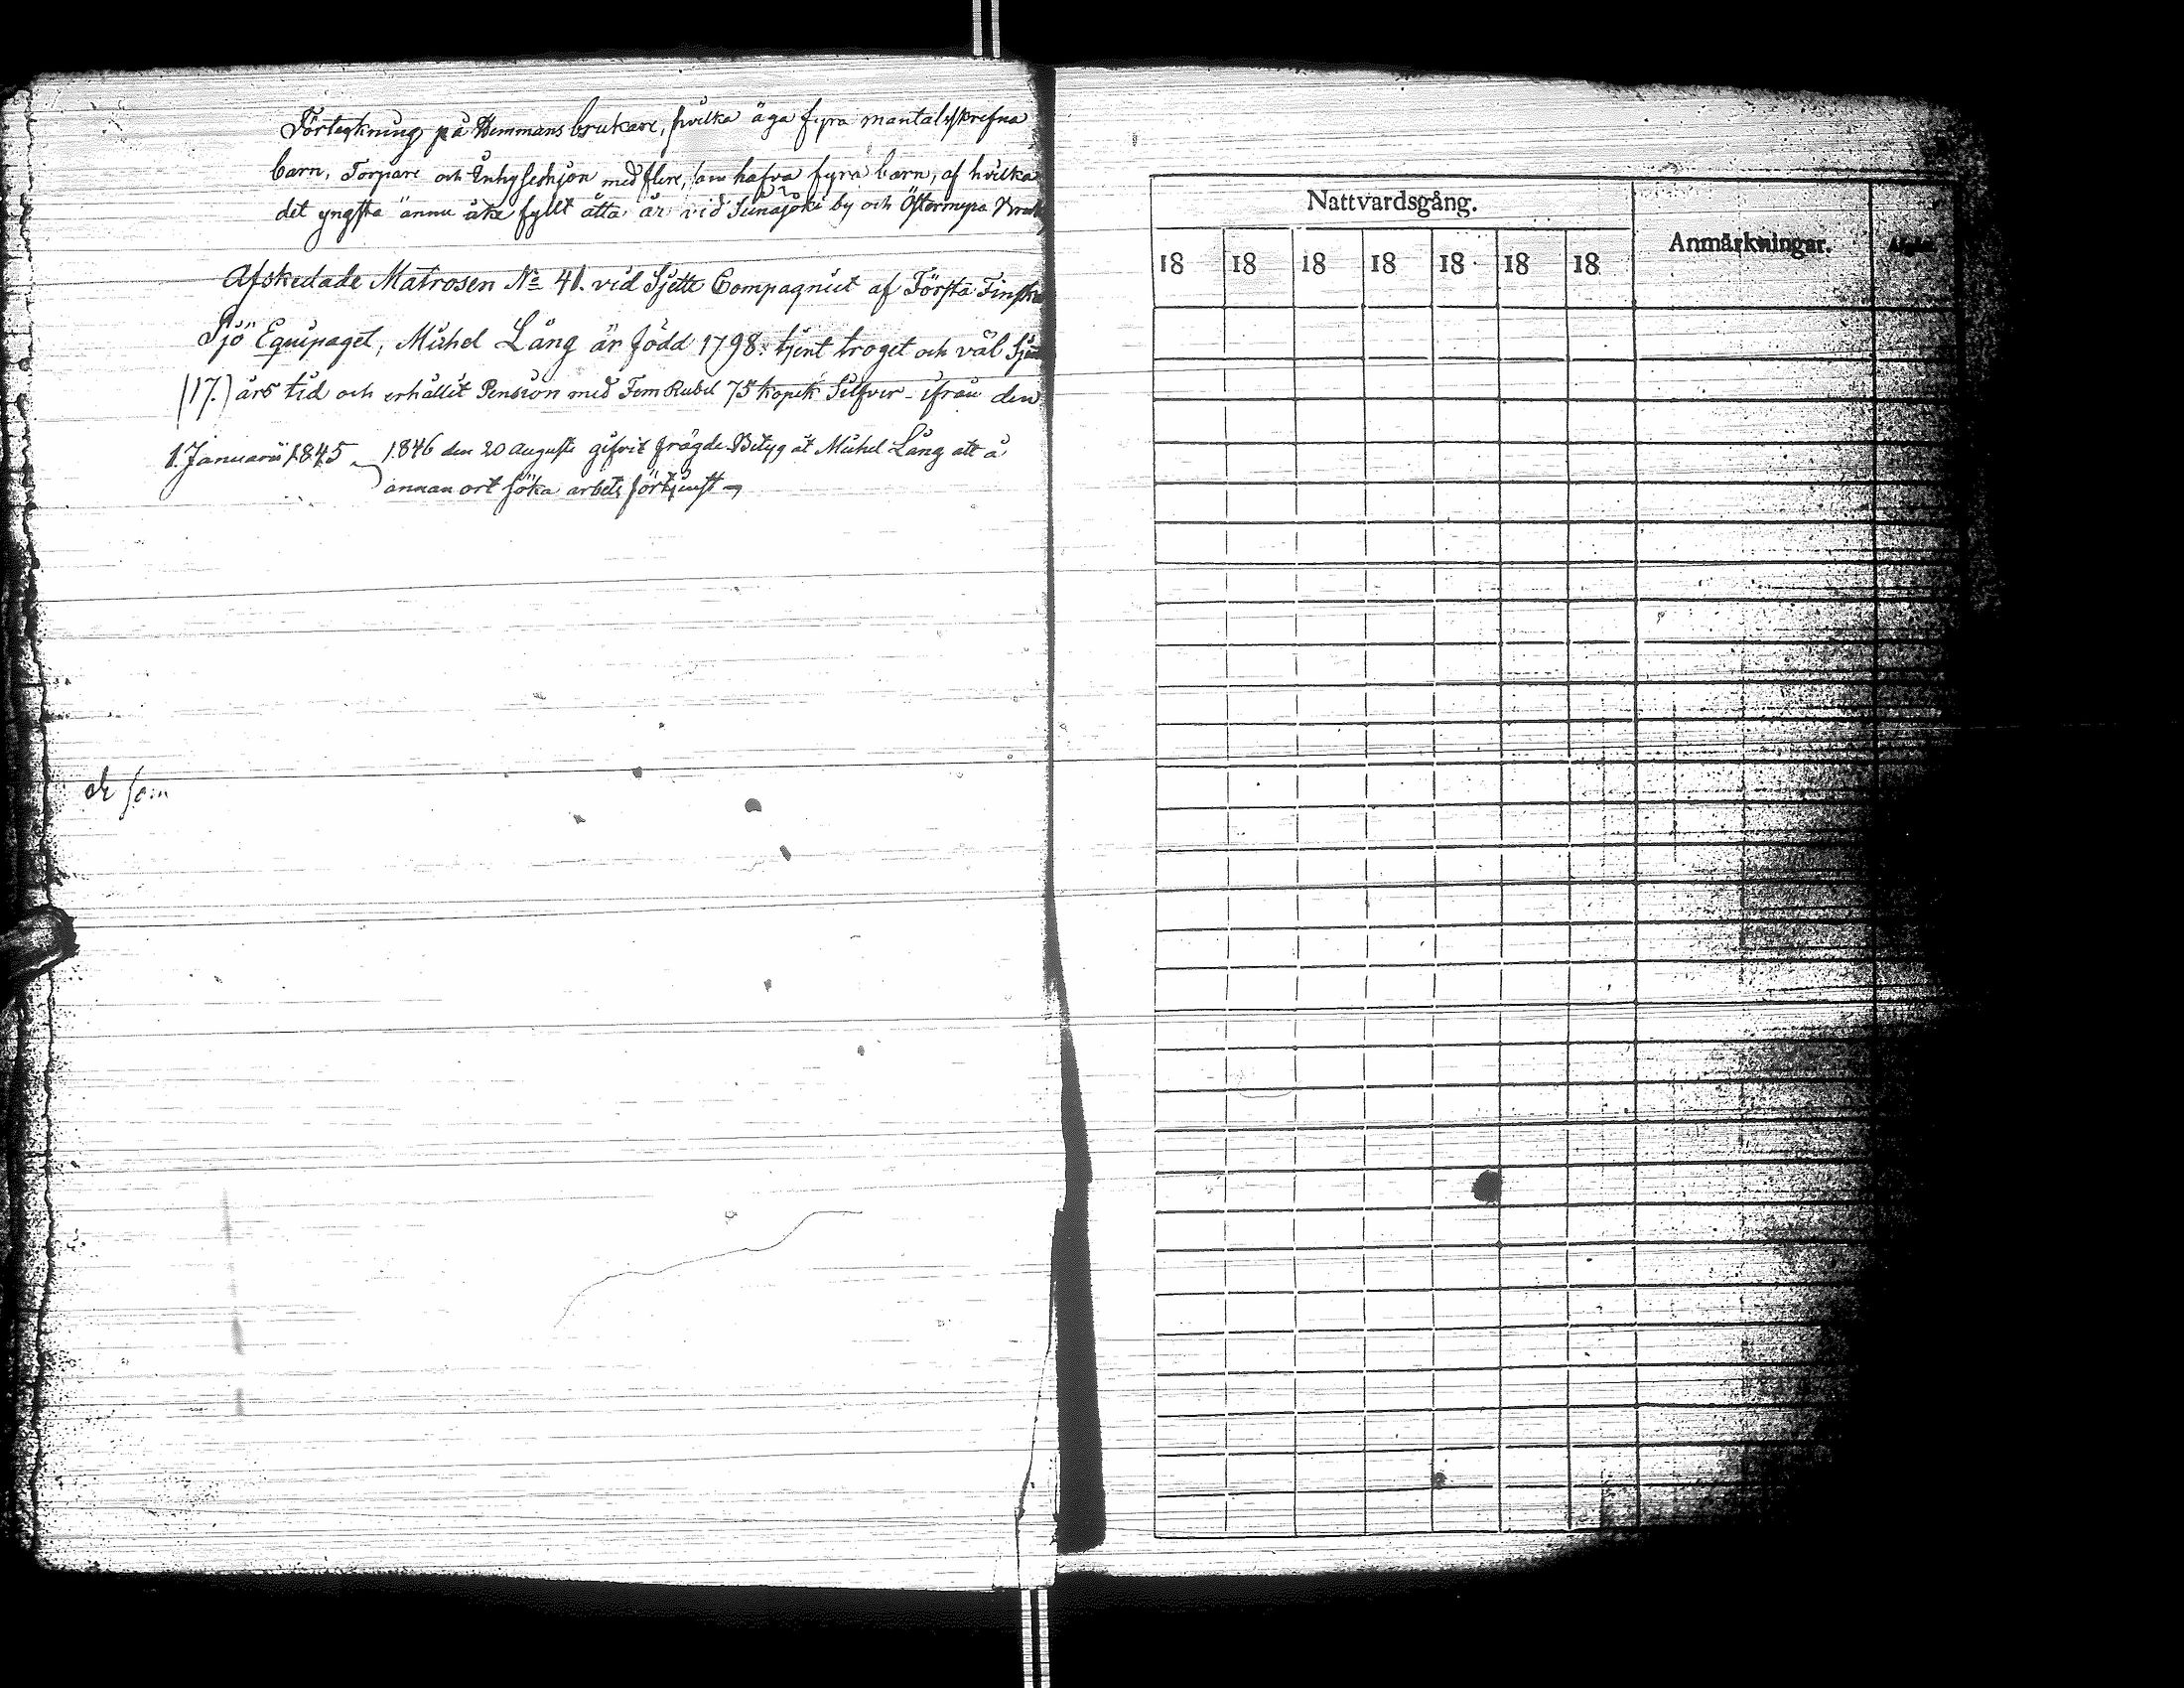 Förtekning på Hemmans brukare, hvilka äga fyra mantalsskrefna
barn, Torpare och Inhyseshjon med flere, som hafva fyra barn, af hvilka
det yngsta ännu icke fyllt åtta år vid Seinäjoki by och Östermyra Bruk
Afskedade Matrosen No 41. vid Sjette Compagniet af Första Finska
Sjö Equipaget, Michel Lång är född 1798. tjent troget och väl
(17.) års tid och erhållit Pension med Fem Rubel 75 kopek Silfver ifrån den
1. Januarii 1845 1846 den 20 Augusti gifvit frägde Betyg åt Michel Lång att å
annan ort söka arbets förtjenst
de som
Nattvardsgång.
Anmärkningar.
18 18 18 18 18 18 18